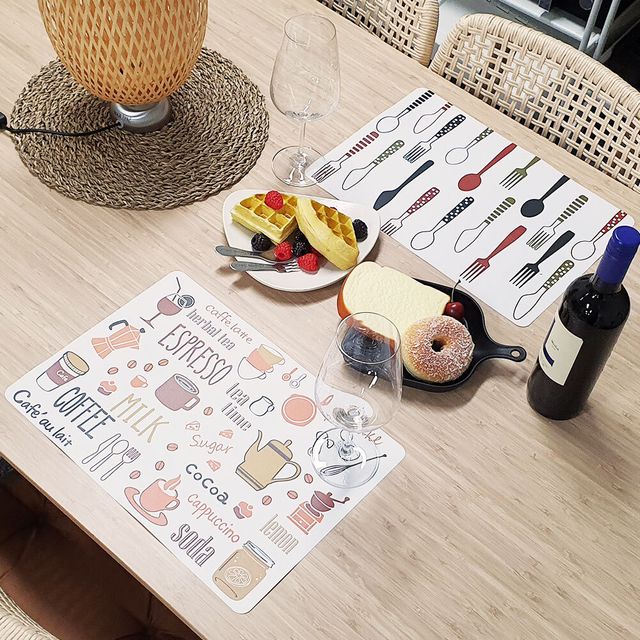 Caffe latte
herbal tea
ESPRESSO
tea
time
COFFEE
MILK
Café au lait
Sugar
cocoa
Cappuccino
soda
lemon